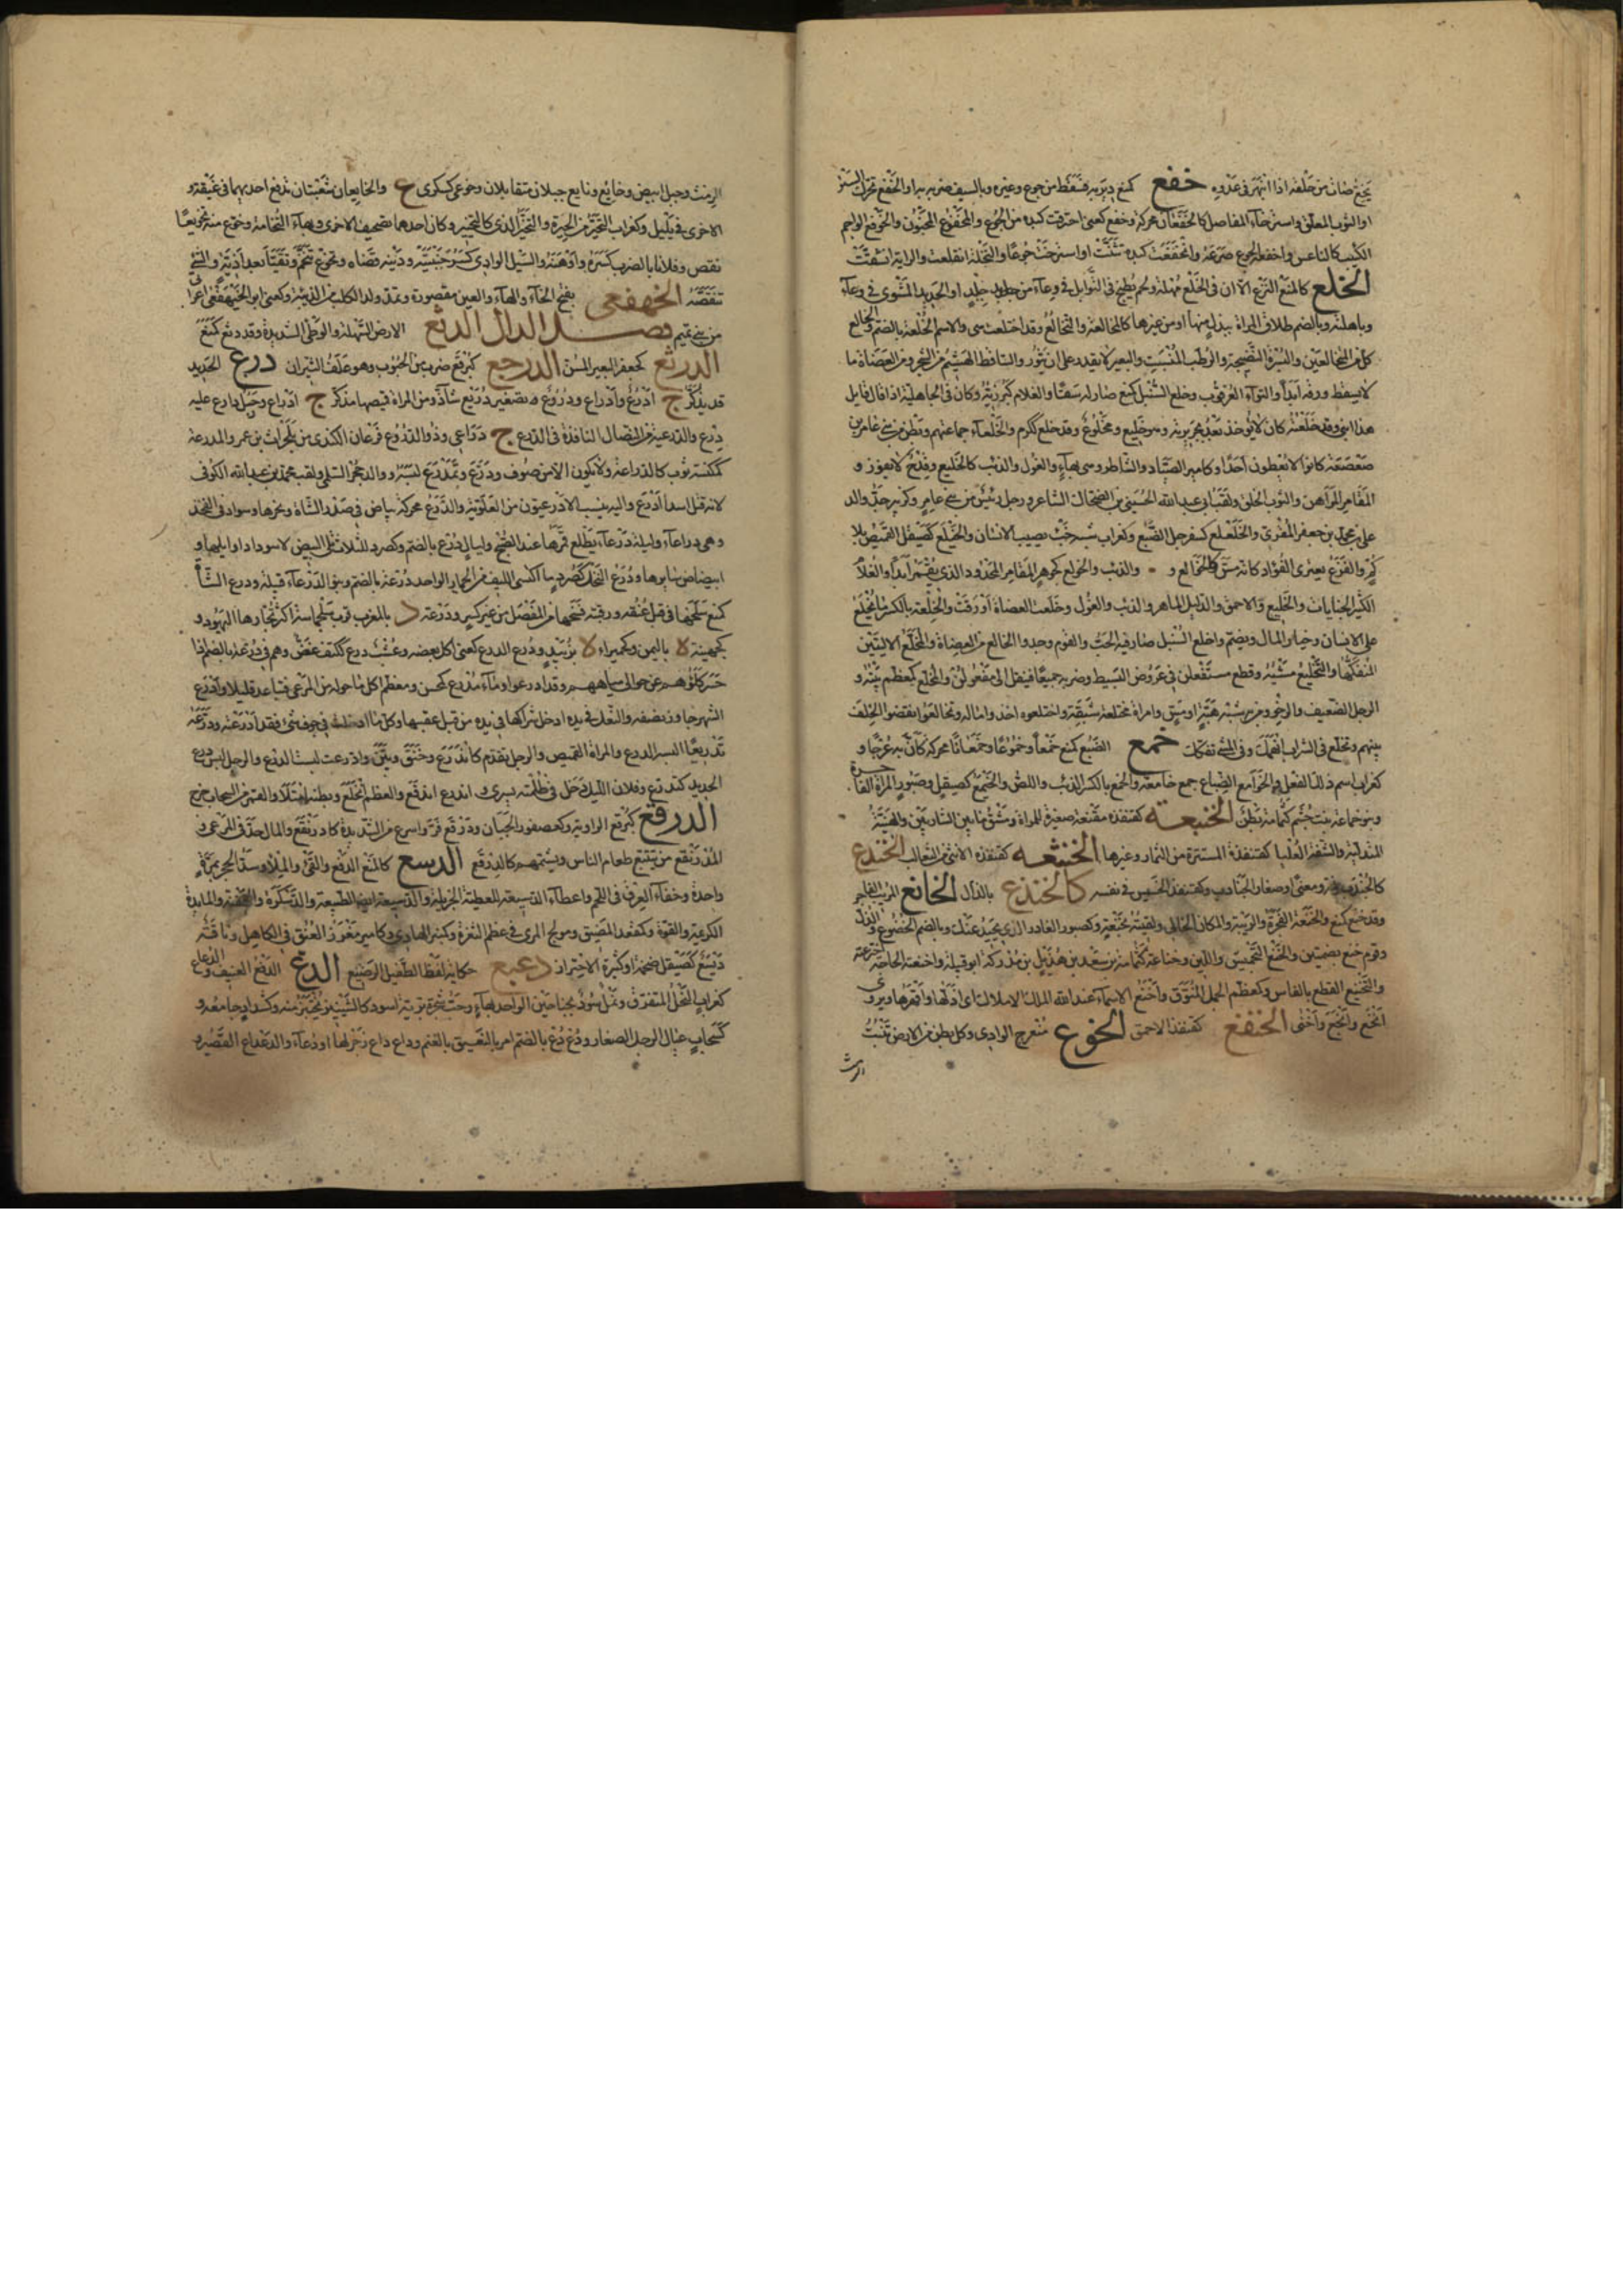 يجيء ضأن من خلفه اذا انبهر في عدوه خفع كمنع دير به فسقط من جوع وغيره وبالسيف ضربه به او الخفع تحرك الستر
او الثوب المعلق واسترخاء المفاصل كالخفعان محركة وخفع كعني احترقت كبده من الجوع والمخفوع المجنون والخوفع الواجم
الكئيب كالناعس واخفعه الجوع صرعه وانخفعت كبده تثنت او استرخت جوعا والنخلة انقلعت والرئة انشقت
الخلع كالمنع النزع الا ان في الخلع مهلة ولحم يطبخ في التوابل في وعاء من جلد او القديد المشوي في وعاء
وباهالته وبالضم طلاق المراة ببذل منها او من غيرها كالمخالعة والتخالع وقد اختلعت هي والاسم الخلعة بالضم والخالع
كل من المتخالعين والبسرة النضيجة والرطب المنسبت والبعير لا يقدر على ان يثور والساقط الهشيم من الشجر ومن العضاه ما
لا يسقط ورقه ابدا والتواء العرقوب وخلع السنبل كمنع صار له سفا والغلام كبر زبه وكان في الجاهلية اذا قال قائل
هذا ابني وقد خلعته كان لا يؤخذ بعد بجريرته وهو خليع ومخلوع وقد خلع ككرم والخلعاء جماعتهم وبطن من بني عامر بن
صعصعة كانوا لا يعطون احدا وكامير الصياد والشاطر وهي بهاء والغول والذئب كالخليع وقدح لا يفوز و
المقامر المراهن والثوب الخلق ولقب ابي عبد الله الحسين بن الضحاك الشاعر ورجل رئيس من بني عامر وكزبير جد والد
علي بن محمد بن جعفر المقرئ والخلعلع كسفرجل الضبع وكغراب شبه خبث يصيب الانسان والخيلع كصيقل القميص بلا
كم والفزع يعتري الفؤاد كانه مس كالخالع و والذئب والخولع كجوهر المقامر المجدود الذي يقمر ابدا والغلام
الكثير الجنايات والخليع والاحمق والدليل الماهر والذئب والغول وخلعت العضاه اورقت والخلعة بالكسر ما يخلع
على الانسان وخيار المال ويضم واخلع السنبل صار فيه الحب والقوم وجدوا الخالع من العضاه والمخلع الاليتين
المنفكهما والتخليع مشيه وقطع مستفعلن في عروض البسيط وضربه جميعا فينقل الى مفعولن والمخلع كمعظم بيته و
الرجل الضعيف والرخو ومن به شبه هبتة او مس وامراة مختلعة شبقة واختلعوه اخذوا ماله وتخالعوا نقضوا الحلف
بينهم وتخلع في الشراب انهمك وفي المشي تفكك خمع الضبع كمنع خمعا وخموعا وخمعانا محركة كان به عرجا و
كغراب اسم ذلك الفعل والخوامع الضباع جمع خامعة والخمع بالكسر الذئب واللص والخيمع كصيقل وصبور المراة الفاجرة
وبنو خماعة بنت جشم كثمامة بطن الخنبعة كقنفذة مقنعة صغيرة للمراة ومشق ما بين الشاربين والهنية
المتدلية والشفة العليا كقنفذة المستترة من الثمار وغيرها الخنثعه كقنفذة الانثى من الثعالب الخندع
كالخندب زنة ومعنى او صغار الجنادب وكقنفذ الخسيس في نفسه كالخنذع بالذال الخانع المريب الفاجر
وقد خنع كمنع والخنعة الفجرة والريبة والمكان الخالي ولقيته بخنعة وكصبور الغادر الذي يحيد عنك وبالضم الخضوع والذل
وقوم خنع بضمتين والخنع التجميش واللين وخناعة كثمامة بن سعد بن هذيل بن مدركة ابو قبيلة واخنعته الحاجة اضرعته
والتخنيع القطع بالفاس وكمعظم الجمل المنوق واخنع الاسماء عند الله ملك الاملاك اي اذلها واقهرها ويروى
انخع وابخع واخنى الخنفع كقنفذ الاحمق الخوع منعرج الوادي وكل بطن من الارض تنبت
الرمث
الرمث وجبل ابيض وخايع ونايع جبلان متقابلان وخوعى كسكرى ع والخايعان شعبتان تدفع احديهما في غيقة و
الاخرى في يليل وكغراب التحير من الحيرة والتخير الذي كالنخير وكان احدهما تصحيف الاخرى وبهاء النخامة وخوع منه تخويعا
نقص وفلانا بالضرب كسره واوهنه والسيل الوادي كسر جنبتيه ودينه قضاه وتخوع تنخم وتقيا بعد اذية والشيء
تنقصه الخهفعى بفتح الخاء والهاء والعين مقصورة وتمد ولد الكلب من الذئبة وكني ابو الخيهفعى اعرابي
من بني تميم فصل الدال الدثع الارض السهلة والوطي الشديد وقد دثع كمنع
الدرثع كجعفر البعير المسن الدرجع كبرقع ضرب من الحبوب وهو علف الثيران درع الحديد
قد يذكر ج ادرع وادراع ودروع وتصغير دريع شاذ ومن المراة قميصها مذكر ج ادراع ورجل دارع عليه
درع والدرعية من النصال النافذة في الدرع ج دراعي وذو الدروع فرعان الكندي من بلحرث بن عمرو والمدرعة
كمكنسة ثوب كالدراعة ولا يكون الا من صوف ودرع وتمدرع لبسه ووالد حجر السلمي ولقب محمد بن عبيد الله الكوفي
لانه قتل اسدا ادرع واليه ينسب الادرعيون من العلوية والدرع محركة بياض في صدر الشاة ونحرها وسواد في الفخذ
وهي درعاء وليلة درعاء يطلع قمرها عند الصبح وليال درع بالضم وكصرد للثلاث تلي البيض لاسوداد اوائلها و
ابيضاض سايرها ودرع النخل كصرد ما اكتسى الليف من الجمار الواحدة درعة بالضم وبنو الدرعاء قبيلة ودرع الشاة
كمنع سلخها من قبل عنقها ورقبته فسخها من المفصل من غير كسر ودرعة د بالمغرب قرب سجلماسة اكثر تجارها اليهود و
كجهينة ة باليمن وكحميراء ة بزبيد ودرع الزرع كعني اكل بعضه وعشب درع ككتف غض وهم في درعة بالضم اذا
حسر كلؤهم عن حوالي مياههم وقد ادرعوا وماء مدرع كمحسن ومعظم اكل ما حوله من المرعى فتباعد قليلا وادرع
الشهر جاوز نصفه والنعل في يده ادخل شراكها في يده من قبل عقبها وكل ما ادخلت في جوف شيء فقد ادرعته ودرعه
تدريعا البسه الدرع والمراة القميص والرجل تقدم كاندرع وخنق وبين وادرعت لبست الدرع والرجل لبس درع
الحديد كتدرع وفلان الليل دخل في ظلمته يسري واندرع اندفع والعظم انخلع وبطنه امتلا والقمر من السحاب خرج
الدرقع كبرقع الراوية وكعصفور الجبان ودرقع فر واسرع من الشديدة كادرنقع والمال جد في الرعي و
المدرنقع من يتتبع طعام الناس ويشتمهم كالدرقع الدسع كالمنع الدفع والقيء والملء وسد الجحر بمرة
واحدة وخفاء العرق في اللحم واعطاء الدسيعة للعطية الجزيلة والدسيعة ايضا الطبيعة والدسكرة والجفنة والمايدة
الكريمة والقوة وكمقعد المضيق ومولج المري في عظم الثغرة وكمنبر الهادي وكامير مغرز العنق في الكاهل وناقة
ديسع كصيقل ضخمة او كثيرة الاجترار دعبع حكاية لفظ الطفل الرضيع الدع الدفع العنيف والدعاع
كغراب النخل المتفرق ونمل سود بجناحين الواحد بهاء وحب شجرة برية اسود كالشينيز يختبز منه وكشداد جامعه و
كسحاب عيال الرجل الصغار ودع دع بالضم امر بالنعيق بالغنم وداع داع زجر لها او دعاء والدعداع القصير